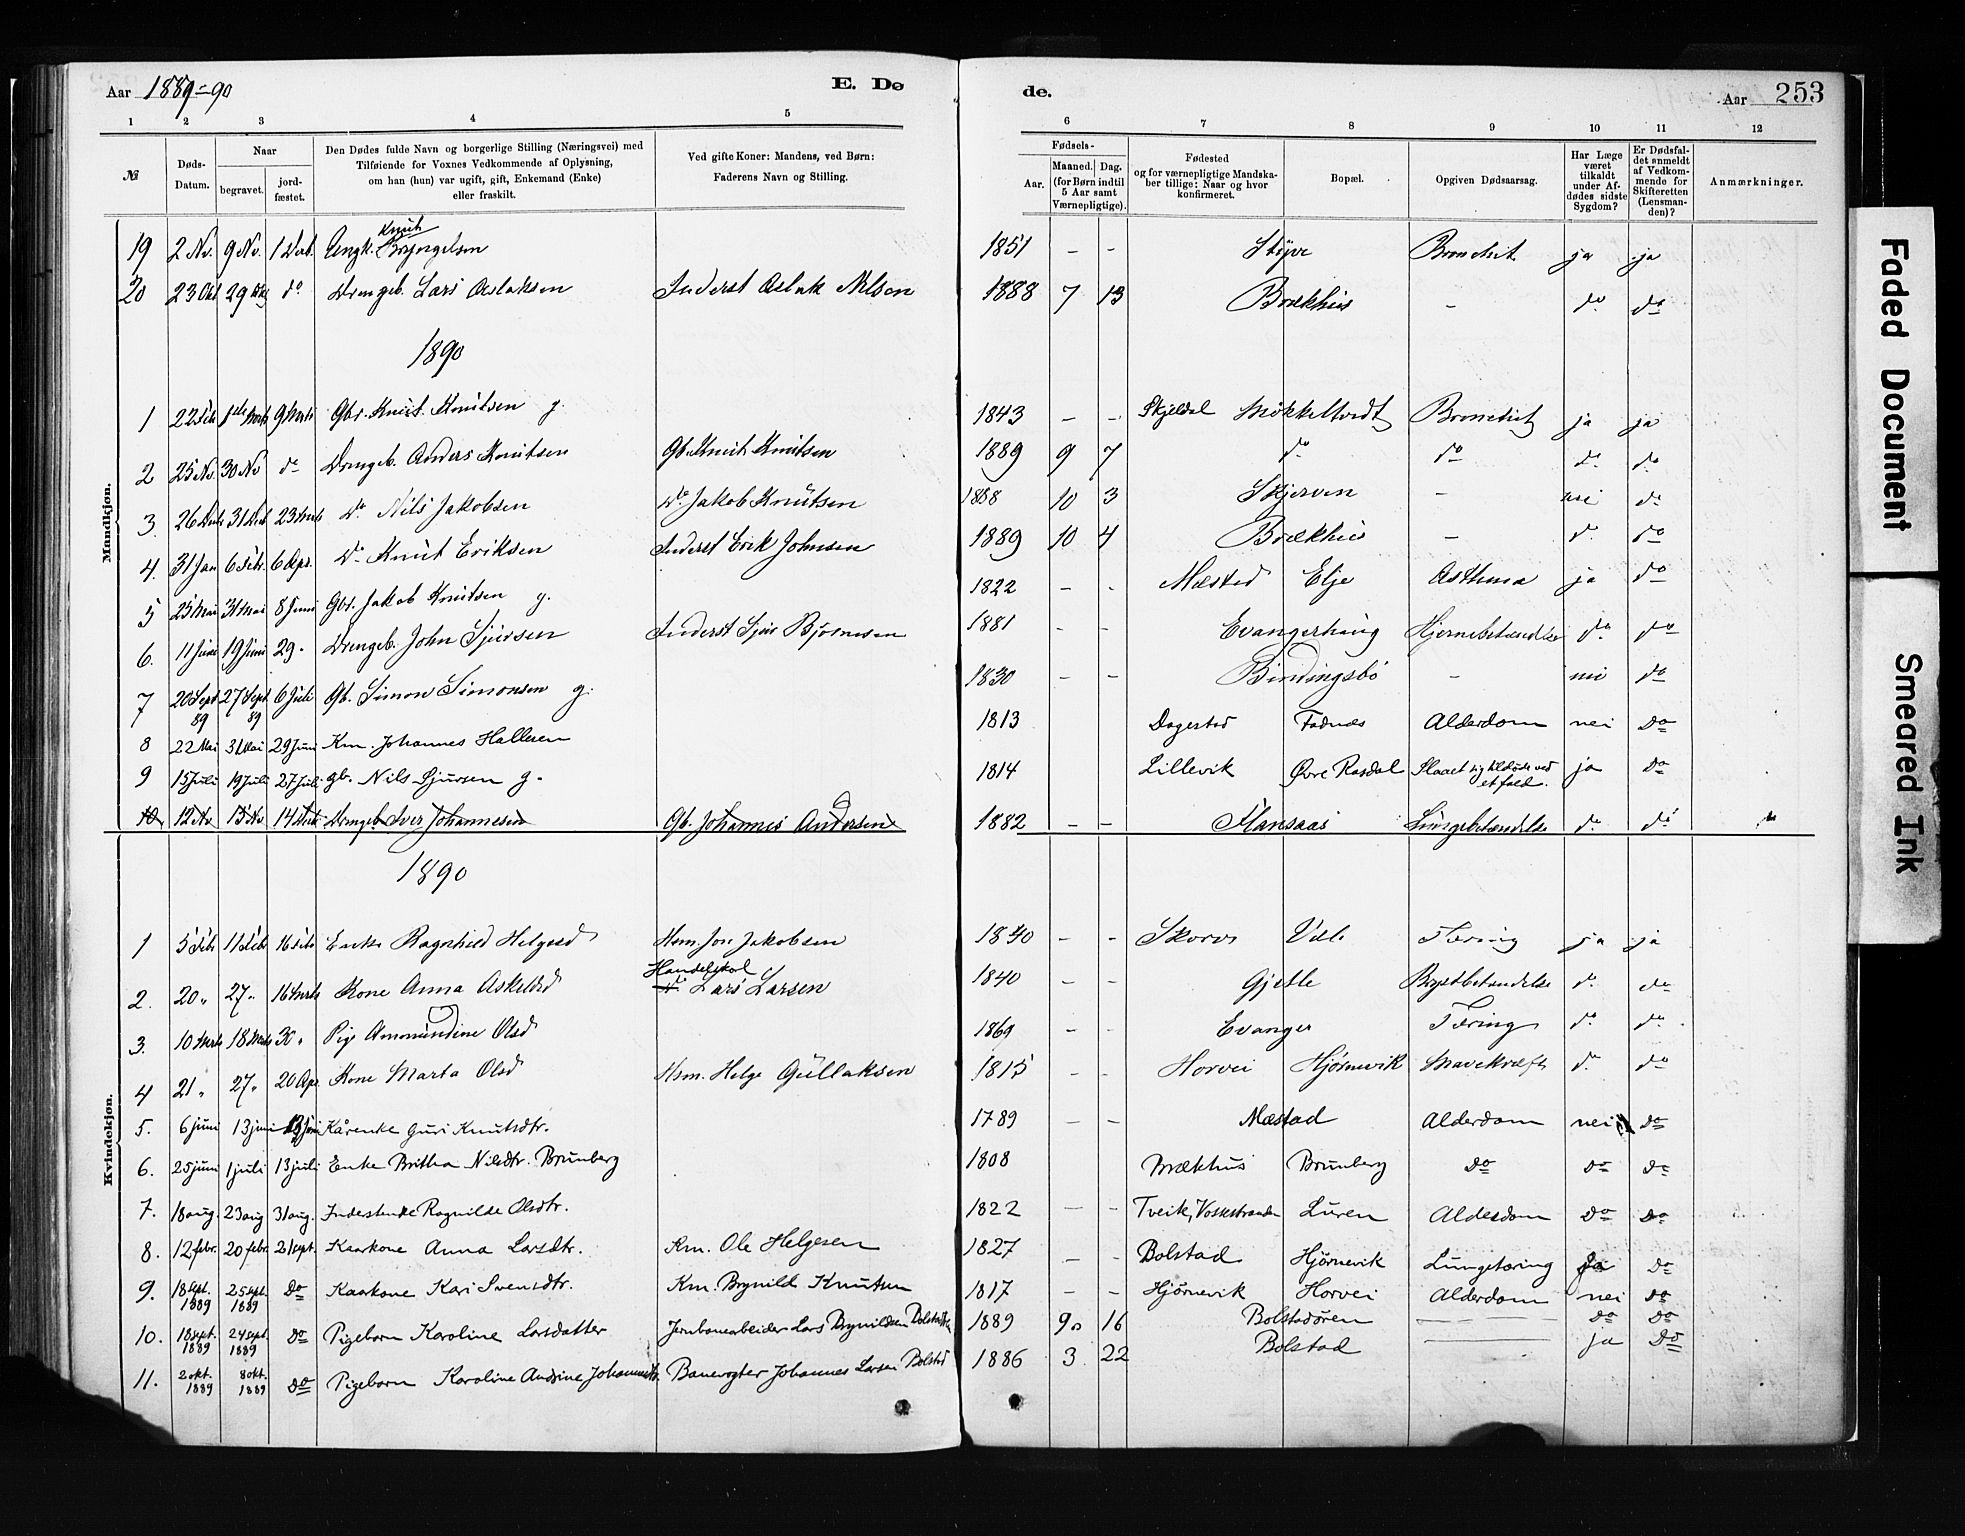 Aar 1889-90
E. Dø
de.
Aar 253
1 2 3 4 5 6 7 8 9 10 11 12
№
Døds-Datum.
Naar
begravet.
jordfæstet.
Den Dødes fulde Navn og borgerlige Stilling (Næringsvei) med
Tilføiende for Voxnes Vedkommende af Oplysning,
om han (hun) var ugift, gift, Enkemand (Enke)
eller fraskilt.
Ved gifte Koner: Mandens, ved Børn:
Faderens Navn og Stilling.
Fødsels-
Aar.
Maaned. Dag.
(for Børn indtil
5 Aar samt
Værnepligtige).
Fødested
og for værnepligtige Mandska-
ber tillige: Naar og hvor
konfirmeret.
Bopæl.
Opgiven Dødsaarsag.
Har Læge
været
tilkaldt
under Af-
dødes sidste
Sygdom?
Er Dødsfal-
det anmeldt
af Vedkom-
mende for
Skifteretten
(Lensman-
den)?
Anmærkninger.
Mandkjøn.
19 2 Nv. 9 Nv. 1 Decb. Ungk. Knut Brynjelsen 1851 - - Styve Bronchit ja ja
20 23 Okt 29 Okt do Drengeb. Lars Aslaksen Inderst Aslak Nilsen 1888 7 13 Brækhus - do do
1890
1 22 Feb 1ste Marts 9 Marts Gbr. Knut Knutsen g. 1843 - - Skjeldal Mökkeltvedt Bronchit ja ja
2 25 Nv. 30 Nv do Drengeb. Anders Knutsen Gb. Knut Knutsen 1889 9 7 do do do do
3. 26 Decb 31 Decb 23 Marts Do Nils Jakobsen Do Jakob Knutsen 1888 10 3 Skjerven - nei do
4. 31 Jan 6 Febr. 6 Apr. Do Knut Eriksen Inderst Erik Johnsen 1889 10 4 Brækhus - do do
5 25 Mai 31 Mai 8 Juni Gbr. Jakob Knutsen g. 1822 - - Mæstad Elje Asthma ja do
6. 11 Juni 19 Juni 29 " Drengeb. John Sjursen Inderst Sjur Bjørnesen 1881 - - Evangerhaug Hjernebetændelse do do
7 20 Sept 89 27 Sept 89 6 Juli Gb. Simon Simonsen g. 1830 - - Bindingsbö - nei do
8 22 Mai 31 Mai 29 Juni Km. Johannes Hallesen 1813 Dagestad Fadnes Alderdom nei Do
9 15 Juli 19 Juli 27 Juli gb. Nils Sjursen g. 1814 Lillevik Øvre Rasdal Slaaet sig tildøde ved et fald. ja do
10. 12 Nv 15 Nv 14 Decb Drengeb. Iver Johannesen Gb. Johannes Andersen 1882 - - Flansaas Lungebetændelse do do
1890
Kvindekjøn.
1 5 Feb 11 Feb 16 Feb Enke Ragnhild Helgesd Hsm. Jon Jakobsen 1840 - - Skorve Vile Tæring ja ja
2. 20 " 27 " 16 Marts Kone Anna Askeldsd Handelskal Do Lars Larsen 1840 - - Gjelle Brystbetændelse do do
3. 10 Marts 18 Marts 30 " Pige Ammundine Olsd 1869 - - Evanger Tæring do do
4 21 " 27 " 20 Apr. Kone Marta Olsd Hsm. Helge Gullaksen 1815 - - Horvei Hjørnevik Mavekræft do do
5. 6 juni 13 juni Kårenke Guri Knutsdtr. 1789 - - Mæstad Alderdom nei do
6. 25 juni 1 juli 13 juli Enke Britha Nilsdtr. Brunberg 1808 Brækhus Brunberg do do do
7. 18 aug. 23 aug 31 aug. Inderstenke Ragnilde Olsdtr. 1822 - - Tveit, Vossestranden Luren Alderdom do do
8. 12 febr. 20 febr. 21 sept. Kaarkone Anna Larsdtr. Km. Ole Helgesen 1827 - - Bolstad Hjørnevik Lungetæring ja do
9. 18 sept. 1889 25 sept. 1889 Do Kaarkone Kari Svensdtr. Km. Brynild Knutsen 1817 - - Hjørnevik Horvei Alderdom nei do
10. 18 sept. 1889 24 sept. 1889 Do Pigebarn Karoline Larsdatter Jernbanearbeider Lars Brynildsen 1889 9 16 Bolstadøren do do
11. 2 okt. 1889 8 okt. 1889 do Pigebarn Karoline Andrine Johannesdtr. Banevogter Johannes Larsen Bolstad 1886 3 22 Bolstad ja Do
Faded Document
Smeared Ink